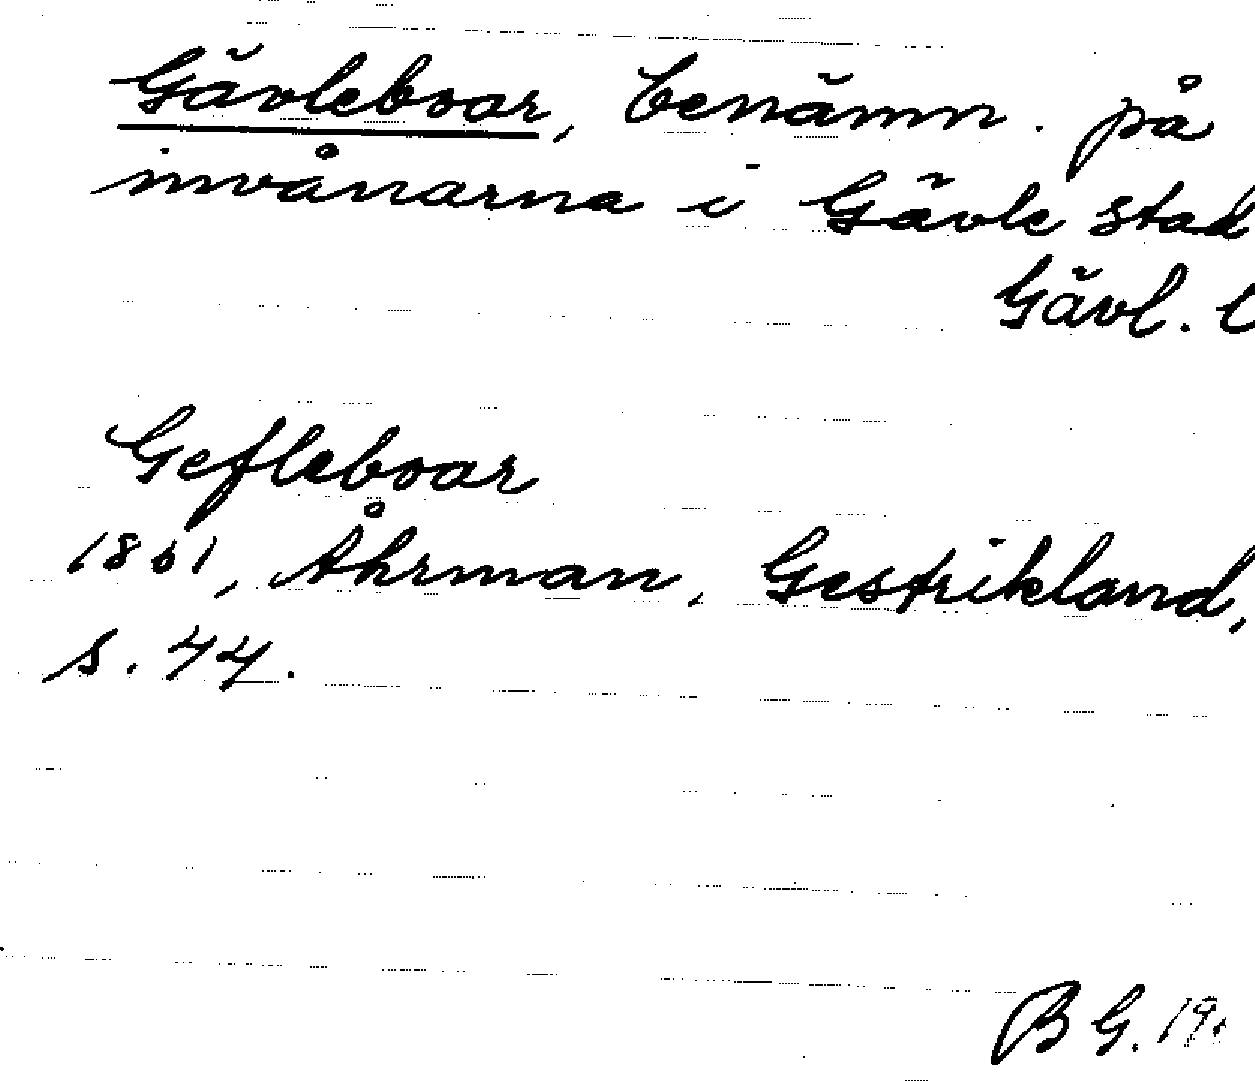 Gävleboar, benämn. på
invånarna i Gävle stad
Gävl. l
Gefleboar
1861, Åhrman, Gestrikland,
s. 44.
B G. 19